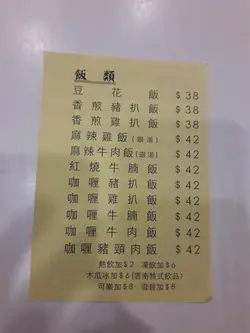 飯類
豆花飯 $38
香煎豬扒飯 $38
香煎雞扒飯 $38
麻辣雞飯(跟湯) $42
麻辣牛肉飯(跟湯) $42
紅燒牛腩飯 $42
咖喱豬扒飯 $42
咖喱雞扒飯 $42
咖喱牛腩飯 $42
咖喱牛肉飯 $42
咖喱豬頸肉飯 $42
熱飲加$2 凍飲加$6
木瓜冰加$6(雲南特式飲品)
可樂加$8 雪碧加$8